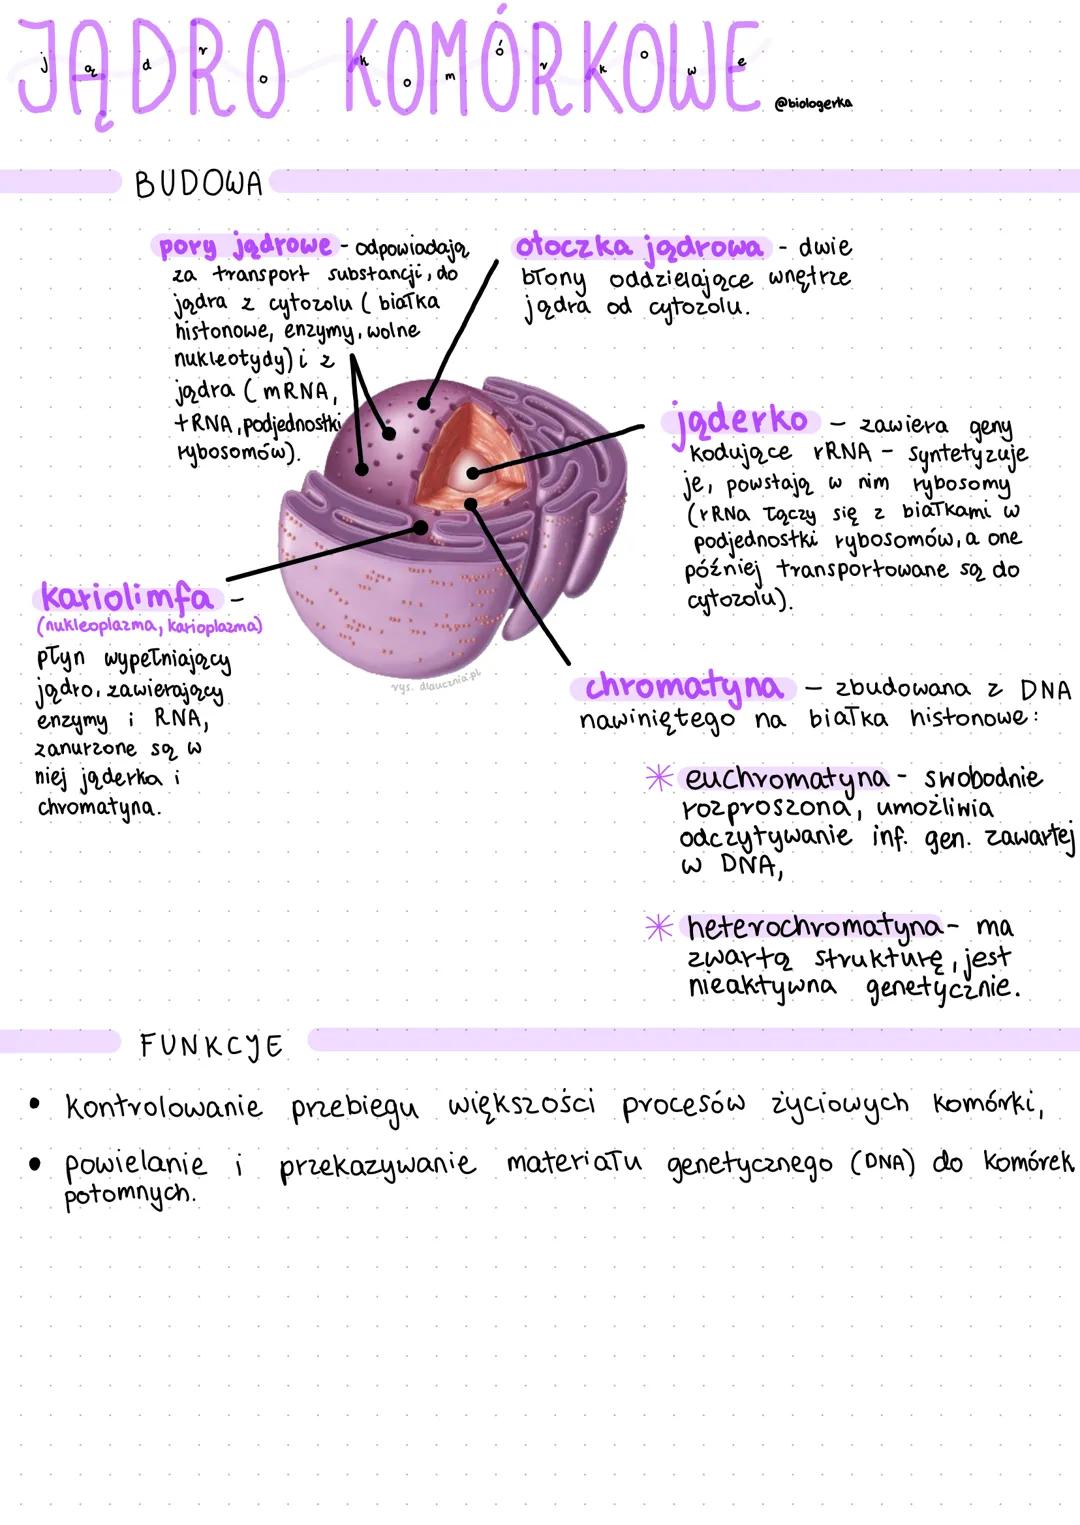 JĄDRO KOMÓRKOWE
jądro komórkowe
@biologerka
BUDOWA
pory jądrowe - odpowiadają
za transport substancji, do
jądra z cytozolu ( białka
histonowe, enzymy, wolne
nukleotydy) i z
jądra ( mRNA,
tRNA, podjednostki
rybosomów).
otoczka jądrowa - dwie
błony oddzielające wnętrze
jądra od cytozolu.
jąderko - zawiera geny
kodujące rRNA - syntetyzuje
je, powstają w nim rybosomy
(rRNA łączy się z białkami w
podjednostki rybosomów, a one
później transportowane są do
cytozolu).
kariolimfa -
(nukleoplazma, karioplazma)
płyn wypełniający
jądro, zawierający
enzymy i RNA,
zanurzone są w
niej jąderka i
chromatyna.
rys. dlaucznia.pl
chromatyna - zbudowana z DNA
nawiniętego na białka histonowe:
* euchromatyna - swobodnie
rozproszona, umożliwia
odczytywanie inf. gen. zawartej
w DNA,
* heterochromatyna - ma
zwartą strukturę, jest
nieaktywna genetycznie.
FUNKCJE
• kontrolowanie przebiegu większości procesów życiowych komórki,
• powielanie i przekazywanie materiału genetycznego (DNA) do komórek
potomnych.